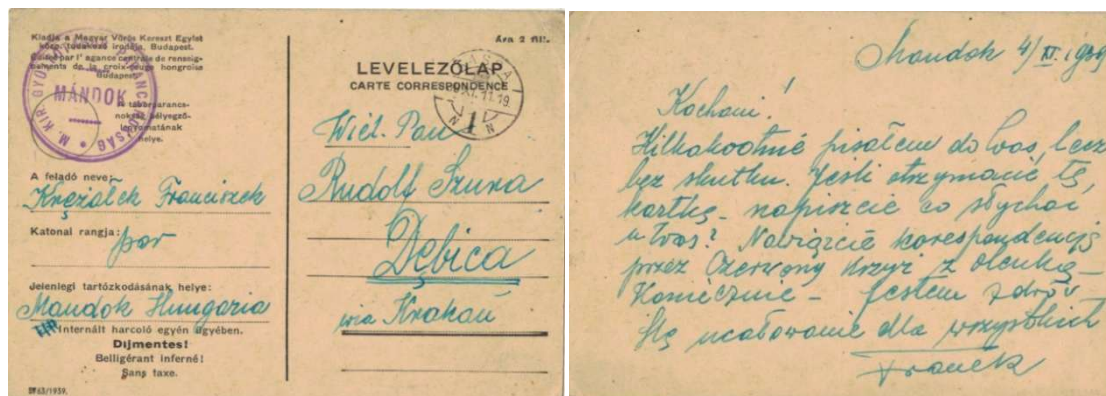 Kiadja a Magyar Vörös Kereszt Egylet
közp. tudakozó irodája, Budapest.
Edité par l' agence centrale de renseig-
nements de la croix-rouge hongroise
Budapest.
M. KIR. PARANCSNOKSÁG
MÁNDOK
A táborparancs-
nokság bélyegző-
lenyomatának
helye.
A feladó neve:
Krężałek Franciszek
Katonai rangja:
por
Jelenlegi tartózkodásának helye:
Mandok Hungaria
Internált harcoló egyén ügyében.
Díjmentes!
Belligérant inferné!
Sans taxe.
63/1939.
Ára 2 fill.
LEVELEZŐLAP
CARTE CORRESPONDENCE
Wiel. Pan
Rudolf Szura
Dębica
via Krakau
Mandok 4/XI. 1939
Kochani!
Kilkakrotnie pisałem do Was, lecz
bez skutku. Jeśli otrzymacie tę
kartkę - napiszcie co słychać
u Was? Nawiążcie korespondencję
przez Czerwony Krzyż z Olenką -
Koniecznie - Jestem zdrów
Ślę ucałowanie dla wszystkich
Franek